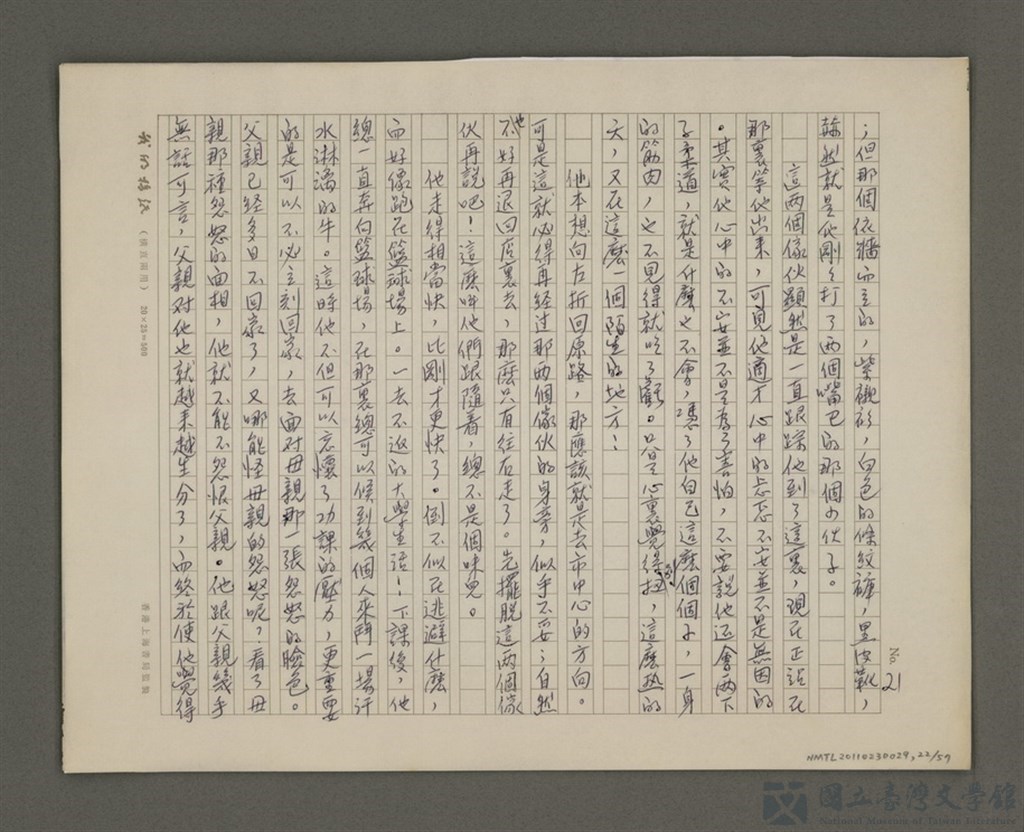 No. 21
；但那個依牆而立的，紫襯衫，白色的條紋褲，黑皮靴，
赫然就是他剛剛打了兩個嘴巴的那個小伙子。
這兩個傢伙顯然是一直跟踪他到了這裏，現在正站在
那裏等他出來，可見他適才心中的忐忑不安並不是無因的
。其實他心中的不安並不是為了害怕，不要說他還會兩下
子柔道，就是什麼也不會，憑了他自己這麼個個子，一身
的筋肉，也不見得就吃了虧。只是心裏覺得彆扭，這麼熱的
天，又在這麼一個陌生的地方！
他本想向左折回原路，那應該就是去市中心的方向。
可是這就必得再經过那兩個傢伙的身旁，似乎不妥；自然
也不好再退回店裏去，那麼只有往右走了。先擺脫這兩個傢
伙再說吧！這麼叫他們跟隨着，總不是個味兒。
他走得相當快，比剛才更快了。倒不似在逃避什麼，
而好像跑在籃球場上。一去不返的大學生活！下課後，他
總一直奔向籃球場，在那裏總可以候到幾個人來鬥一場汗
水淋漓的牛。這時他不但可以忘懷了功課的壓力，更重要
的是可以不必立刻回家，去面对母親那一張忿怒的臉色。
父親已經多日不回家了，又哪能怪母親的忿怒呢？看了母
親那種忿怒的面相，他就不能不怨恨父親。他跟父親幾乎
無話可言，父親对他也就越來越生分了，而終於使他覺得
（橫直兩用） 20×25=500
香港上海書局監製
NMTL20110230029, 22/57
國立臺灣文學館
National Museum of Taiwan Literature